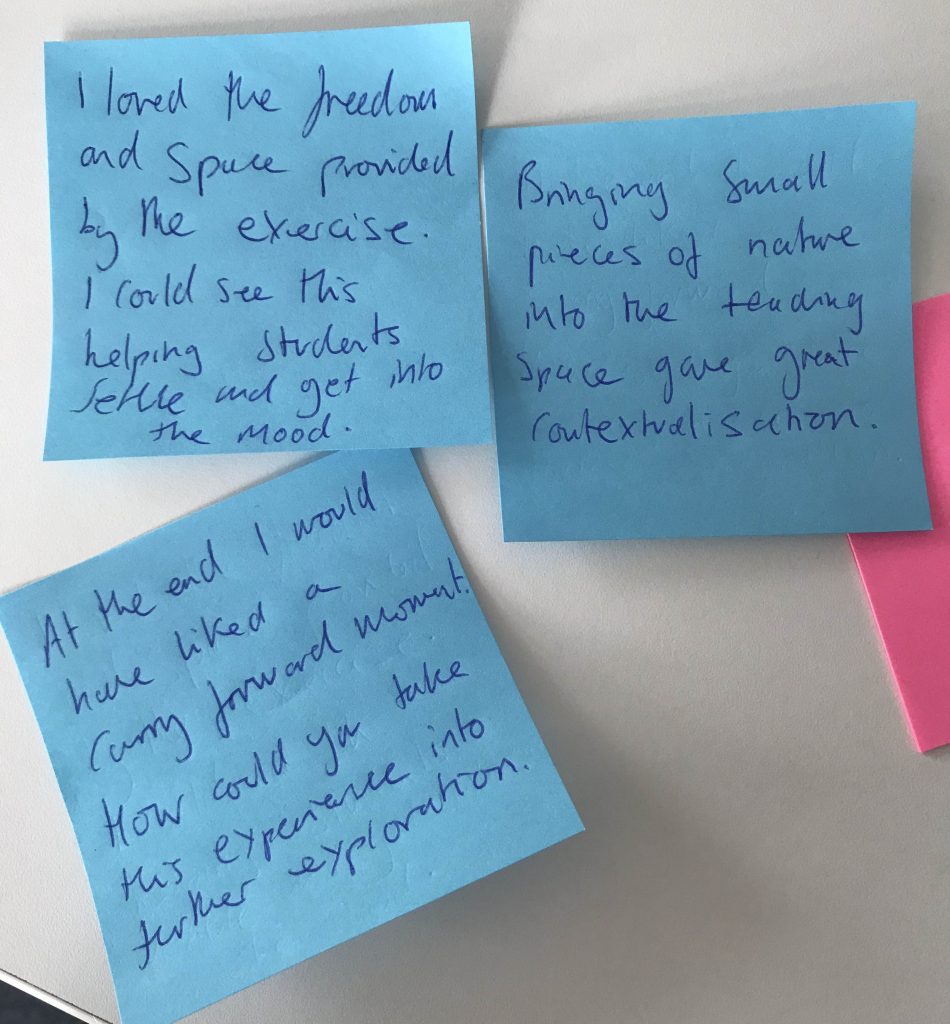 I loved the freedom
and space provided
by the exercise.
I could see this
helping students
settle and get into
the mood.
Bringing small
pieces of nature
into the teaching
space gave great
contextualisation.
At the end I would
have liked a
carry forward moment.
How could you take
this experience into
further exploration.